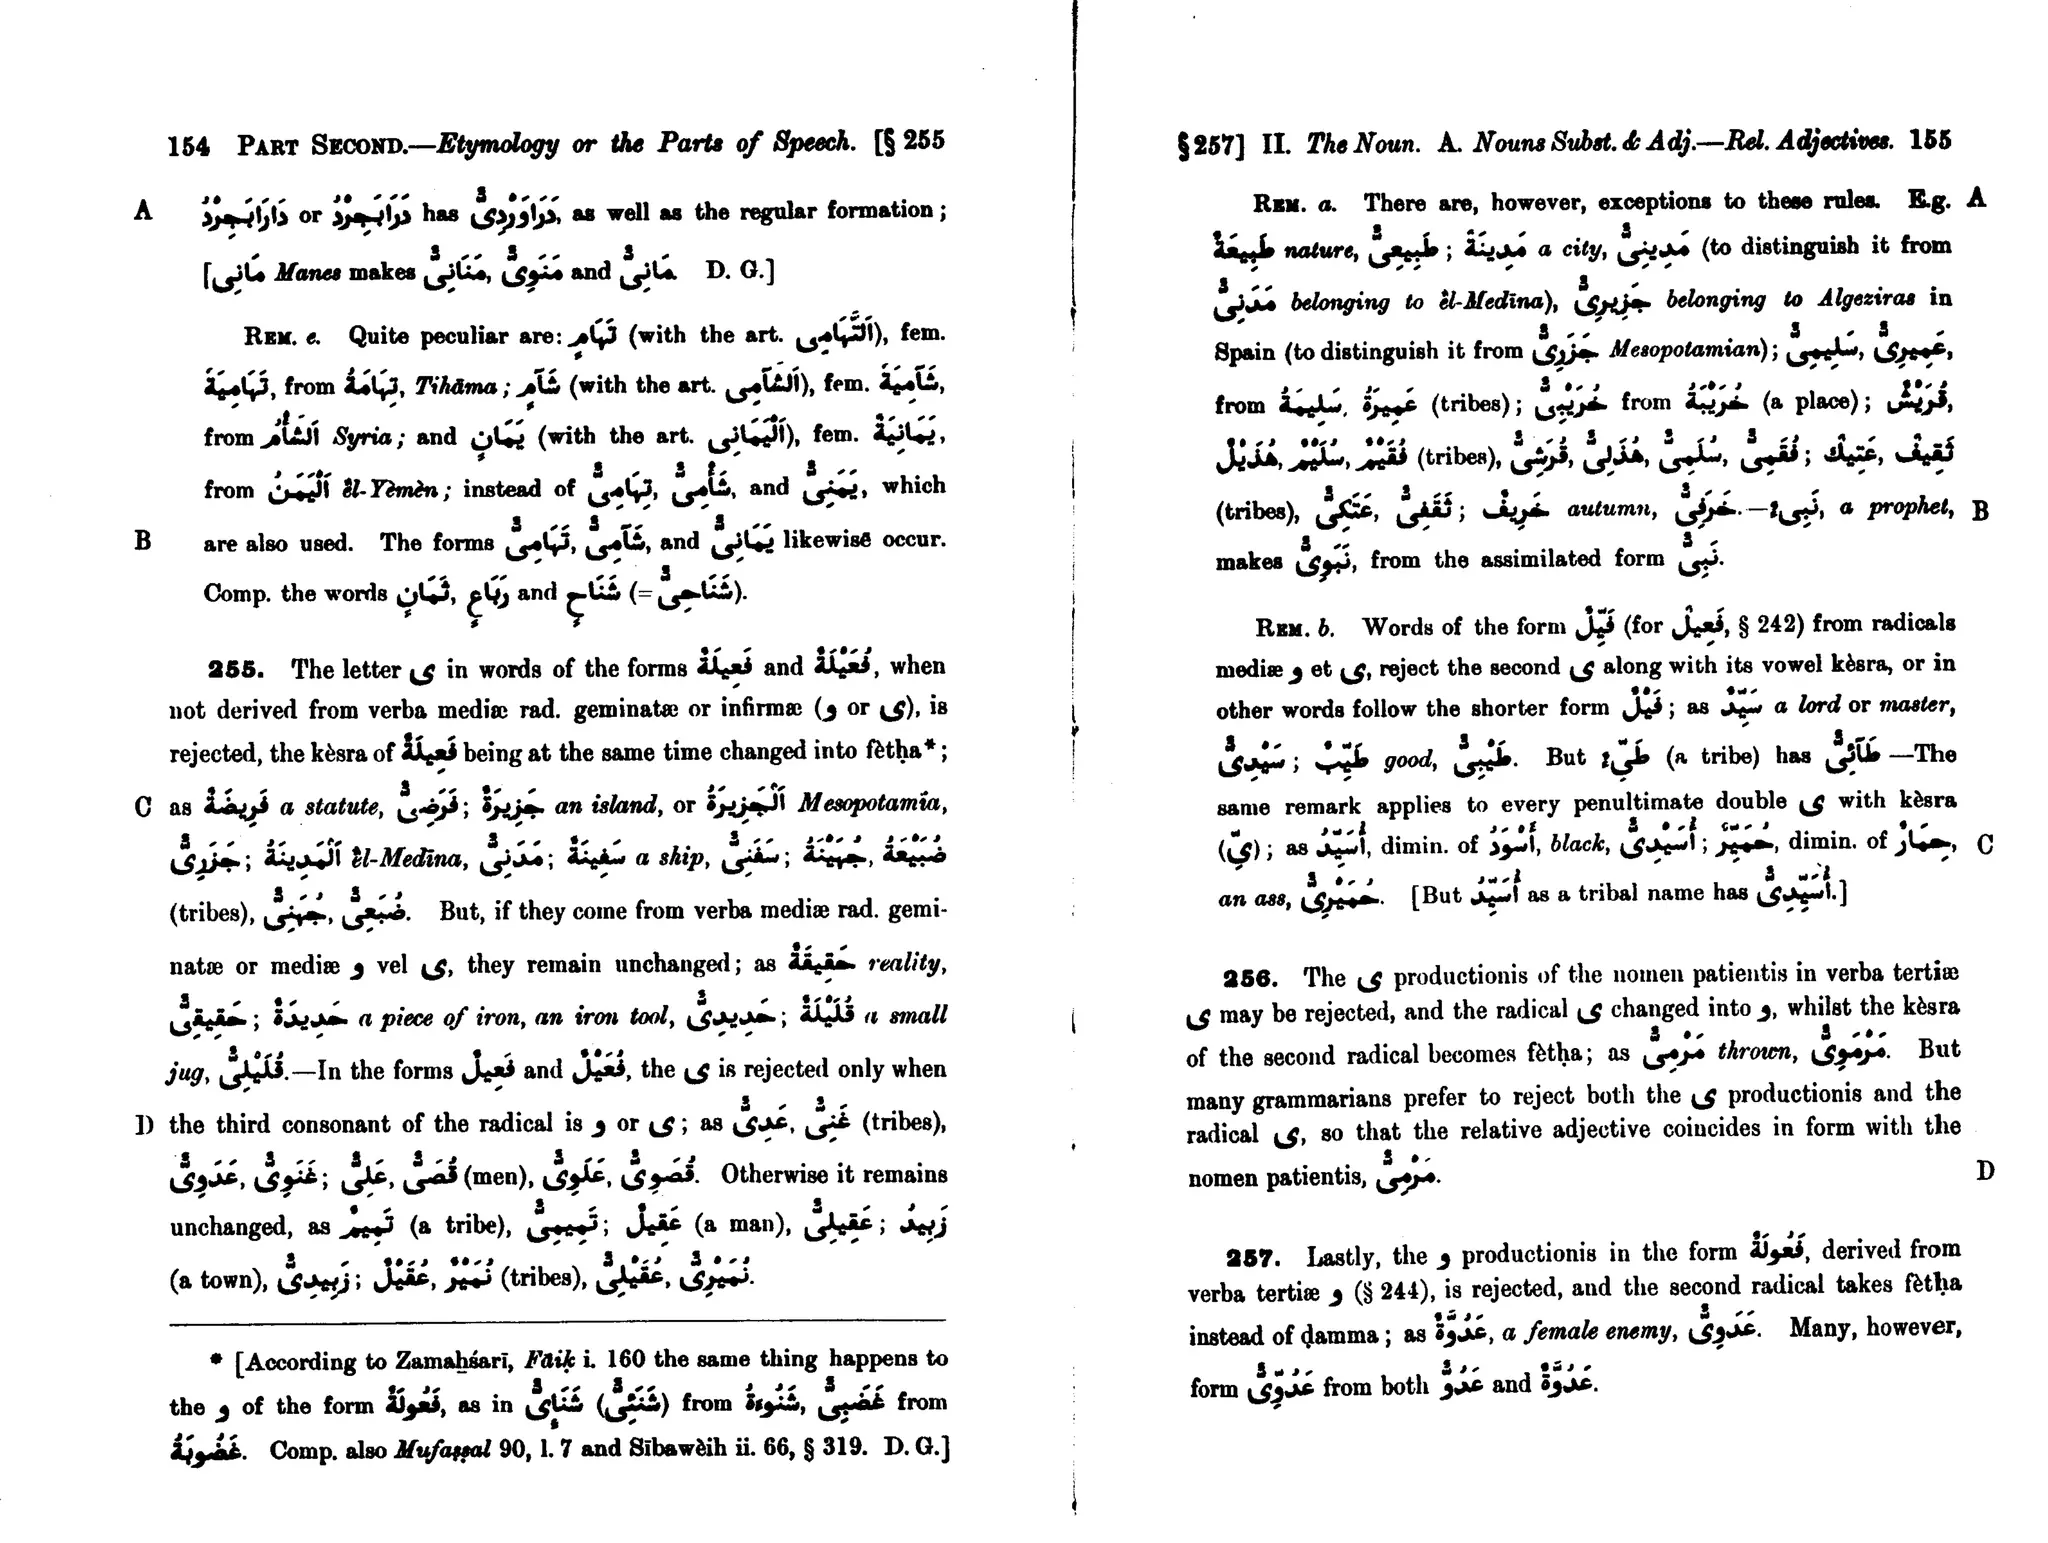 154 PART SECOND.—Etymology or the Parts of Speech. [§ 255
A دَارَابَجِرْدُ or دَرَابَجِرْدُ has دَرَاوَرْدِىٌّ, as well as the regular formation;
[مَانِى Manes makes مَنَانِىٌّ, مَنَوِىٌّ and مَانِىٌّ. D. G.]
REM. e. Quite peculiar are: تَهَامٍ (with the art. اَلتَّهَامِى), fem.
تَهَامِيَةٌ, from تِهَامَةُ, Tihāma; شَآمٍ (with the art. اَلشَّآمِى), fem. شَآمِيَةٌ,
from اَلشَّأْمُ Syria; and يَمَانٍ (with the art. اَلْيَمَانِى), fem. يَمَانِيَةٌ,
from اَلْيَمَنُ èl-Yèmèn; instead of تِهَامِىٌّ, شَأْمِىٌّ, and يَمَنِىٌّ, which
B are also used. The forms تَهَامِىٌّ, شَآمِىٌّ, and يَمَانِىٌّ likewise occur.
Comp. the words ثَمَانٍ, رَبَاعٍ and شَنَاحٍ (= شَنَاحِىٌّ).
255. The letter ى in words of the forms فَعِيلَةٌ and فُعَيْلَةٌ, when
not derived from verba mediæ rad. geminatæ or infirmæ (و or ى), is
rejected, the kèsra of فَعِيلَةٌ being at the same time changed into fètḥa*;
C as فَرِيضَةٌ a statute, فَرَضِىٌّ; جَزِيرَةٌ an island, or اَلْجَزِيرَةُ Mesopotamia,
جَزَرِىٌّ; اَلْمَدِينَةُ èl-Medīna, مَدَنِىٌّ; سَفِينَةٌ a ship, سَفَنِىٌّ; جُهَيْنَةُ, ضُبَيْعَةُ
(tribes), جُهَنِىٌّ, ضُبَعِىٌّ. But, if they come from verba mediæ rad. gemi-
natæ or mediæ و vel ى, they remain unchanged; as حَقِيقَةٌ reality,
حَقِيقِىٌّ; حَدِيدَةٌ a piece of iron, an iron tool, حَدِيدِىٌّ; قُلَيْلَةٌ a small
jug, قُلَيْلِىٌّ.—In the forms فَعِيلٌ and فُعَيْلٌ, the ى is rejected only when
D the third consonant of the radical is و or ى; as عَدِىٌّ, غَنِىٌّ (tribes),
عَدَوِىٌّ, غَنَوِىٌّ; عَلِىٌّ, قُصَىٌّ (men), عَلَوِىٌّ, قُصَوِىٌّ. Otherwise it remains
unchanged, as تَمِيمٌ (a tribe), تَمِيمِىٌّ; عَقِيلٌ (a man), عَقِيلِىٌّ; زَبِيدُ
(a town), زَبِيدِىٌّ; عُقَيْلٌ, نُمَيْرٌ (tribes), عُقَيْلِىٌّ, نُمَيْرِىٌّ.
* [According to Zamaḫśarī, Fāiḳ i. 160 the same thing happens to
the و of the form فَعُولَةٌ, as in شَنَاىِٕىٌّ (شَنَئِىٌّ) from شَنُوءَةُ, غَضَبِىٌّ from
غَضُوبَةُ. Comp. also Mufaṣṣal 90, l. 7 and Sībawèih ii. 66, § 319. D. G.]
§ 257] II. The Noun. A. Nouns Subst. & Adj.—Rel. Adjectives. 155
REM. a. There are, however, exceptions to these rules. E.g. A
طَبِيعَةٌ nature, طَبِيعِىٌّ; مَدِينَةٌ a city, مَدِينِىٌّ (to distinguish it from
مَدَنِىٌّ belonging to èl-Medīna), جَزِيرِىٌّ belonging to Algeziras in
Spain (to distinguish it from جَزَرِىٌّ Mesopotamian); سَلِيمِىٌّ, عَمِيرِىٌّ,
from سَلِيمَةُ, عَمِيرَةُ (tribes); خُرَيْبِىٌّ from خُرَيْبَةُ (a place); قُرَيْشٌ,
هُذَيْلٌ, سُلَيْمٌ, فُقَيْمٌ (tribes), قُرَشِىٌّ, هُذَلِىٌّ, سُلَمِىٌّ, فُقَمِىٌّ; عَتِيكٌ, ثَقِيفٌ
(tribes), عَتَكِىٌّ, ثَقَفِىٌّ; خَرِيفٌ autumn, خَرَفِىٌّ.—نَبِىءٌ, a prophet, B
makes نَبَوِىٌّ, from the assimilated form نَبِىٌّ.
REM. b. Words of the form فَيِّلٌ (for فَعِيلٌ, § 242) from radicals
mediæ و et ى, reject the second ى along with its vowel kèsra, or in
other words follow the shorter form فَيْلٌ; as سَيِّدٌ a lord or master,
سَيْدِىٌّ; طَيِّبٌ good, طَيْبِىٌّ. But طَيِّىءٌ (a tribe) has طَآئِىٌّ —The
same remark applies to every penultimate double ى with kèsra
(ىِّ); as أُسَيِّدُ, dimin. of أَسْوَدُ, black, أُسَيْدِىٌّ; حُمَيِّرٌ, dimin. of حِمَارٌ, C
an ass, حُمَيْرِىٌّ. [But أُسَيِّدُ as a tribal name has أُسَيِّدِىٌّ.]
256. The ى productionis of the nomen patientis in verba tertiæ
ى may be rejected, and the radical ى changed into و, whilst the kèsra
of the second radical becomes fètḥa; as مَرْمِىٌّ thrown, مَرْمَوِىٌّ. But
many grammarians prefer to reject both the ى productionis and the
radical ى, so that the relative adjective coincides in form with the
nomen patientis, مَرْمِىٌّ. D
257. Lastly, the و productionis in the form فَعُولَةٌ, derived from
verba tertiæ و (§ 244), is rejected, and the second radical takes fètḥa
instead of ḍamma; as عَدُوَّةٌ, a female enemy, عَدَوِىٌّ. Many, however,
form عَدُوِّىٌّ from both عَدُوٌّ and عَدُوَّةٌ.